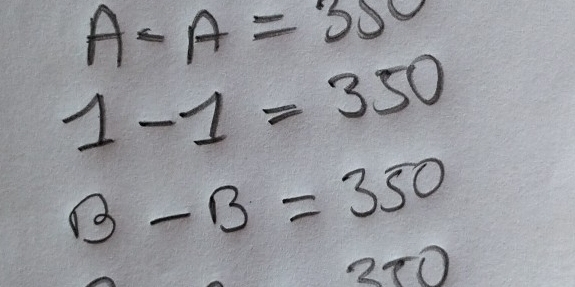 A - A = 350
1 - 1 = 350
B - B = 350
350